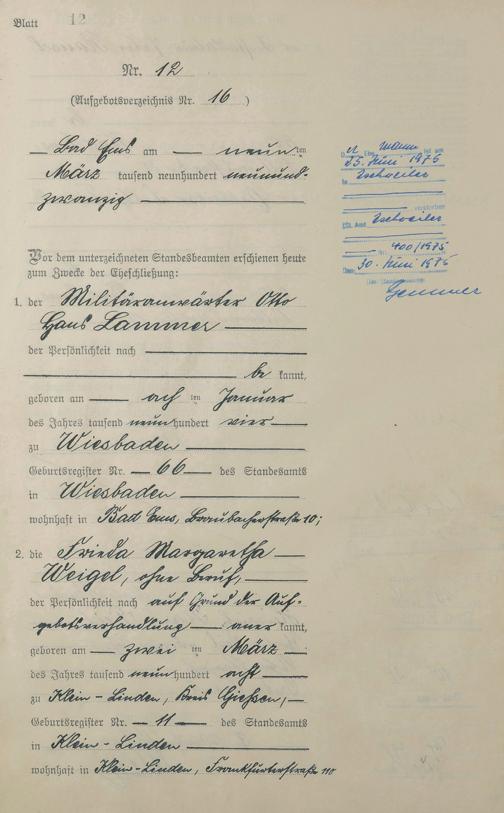 Blatt 12
Nr. 12
(Aufgebotsverzeichnis Nr. 16)
Bad Ems am neunten
März tausend neunhundert neunund-
zwanzig
Vor dem unterzeichneten Standesbeamten erschienen heute
zum Zwecke der Eheschließung:
1. der Militäranwärter Otto
Hans Lammer
der Persönlichkeit nach
be kannt,
geboren am ach ten Januar
des Jahres tausend neunhundert vier
zu Wiesbaden
Geburtsregister Nr. 66 des Standesamts
in Wiesbaden
wohnhaft in Bad Ems, Braubacherstraße 10;
2. die Frieda Margaretha
Weigel, ohne Beruf,
der Persönlichkeit nach auf Grund der Auf-
gebotsverhandlung aner kannt,
geboren am zwei ten März
des Jahres tausend neunhundert acht
zu Klein-Linden, Kreis Gießen,
Geburtsregister Nr. 11 des Standesamts
in Klein-Linden
wohnhaft in Klein-Linden, Frankfurterstraße 110
Ehemann ist am
25. Juni 1975
in Eschweiler
verstorben
Eschweiler
Nr. 400/1975
30. Juni 1975